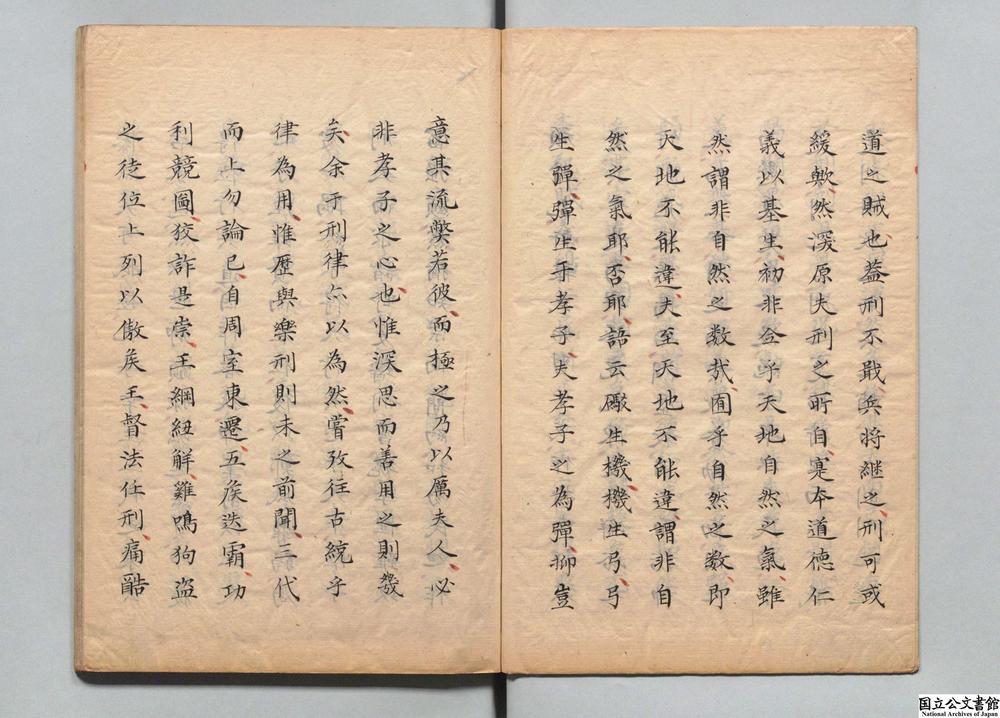 道之賊也蓋刑不戢兵将継之刑可或
緩歟然深原夫刑之所自寔夲道德仁
義以基生初非仝乎天地自然之氣雖
然謂非自然之数㢤囿乎自然之数即
天地不能違夫至天地不能違謂非自
然之氣耶否耶語云礮生機機生弓弓
生彈彈生于孝子夫孝子之為彈抑豈
意其流獘若彼而極之乃以厲夫人必
非孝子之心也惟深思而善用之則幾
矣余于刑律亦以為然嘗攷往古統乎
律為用惟歴與樂刑則未之前聞三代
而上勿論已自周室東遷五矦迭霸功
利競圖狡詐是崇王綱紐解雞鳴狗盜
之徒位上列以傲矦王督法任刑痛酷
国立公文書館
National Archives of Japan